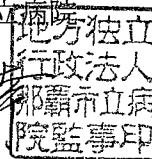 立病院
地方独立
行政法人
那覇市立病
院監事印